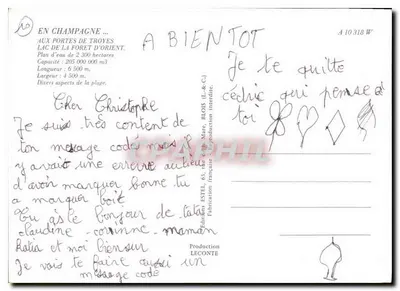 EN CHAMPAGNE ...
AUX PORTES DE TROYES
LAC DE LA FORET D'ORIENT.
Plan d'eau de 2 300 hectares
Capacité : 205 000 000 m3
Longueur : 6 500 m.
Largeur : 4 500 m.
Divers aspects de la plage.
A 10 318 W
A BIENTOT
Je te quitte
cédric qui pense a
toi
Cher Christophe
Je suis très content de
ton message codé mais il
y avait une erreur au lieu
d'avoir marquer borne tu
a marquer boit
tu as le bonjour de tata
claudine - corinne - maman
Katia et moi bien sur
Je vais te faire aussi un
message codé
Production
LECONTE